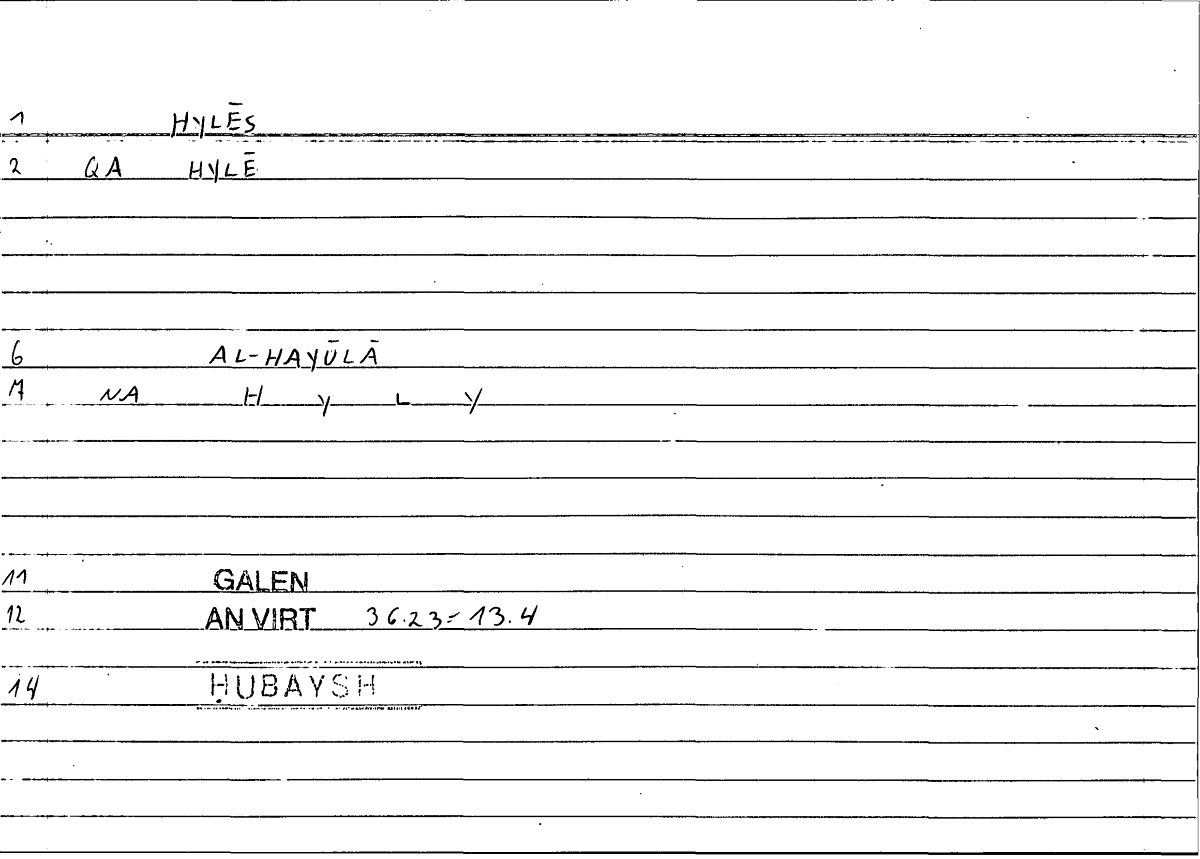 1 HYLĒS
2 QA HYLĒ
6 AL-HAYŪLĀ
7 NA H Y L Y
11 GALEN
12 AN VIRT 36.23=13.4
14 ḤUBAYSH